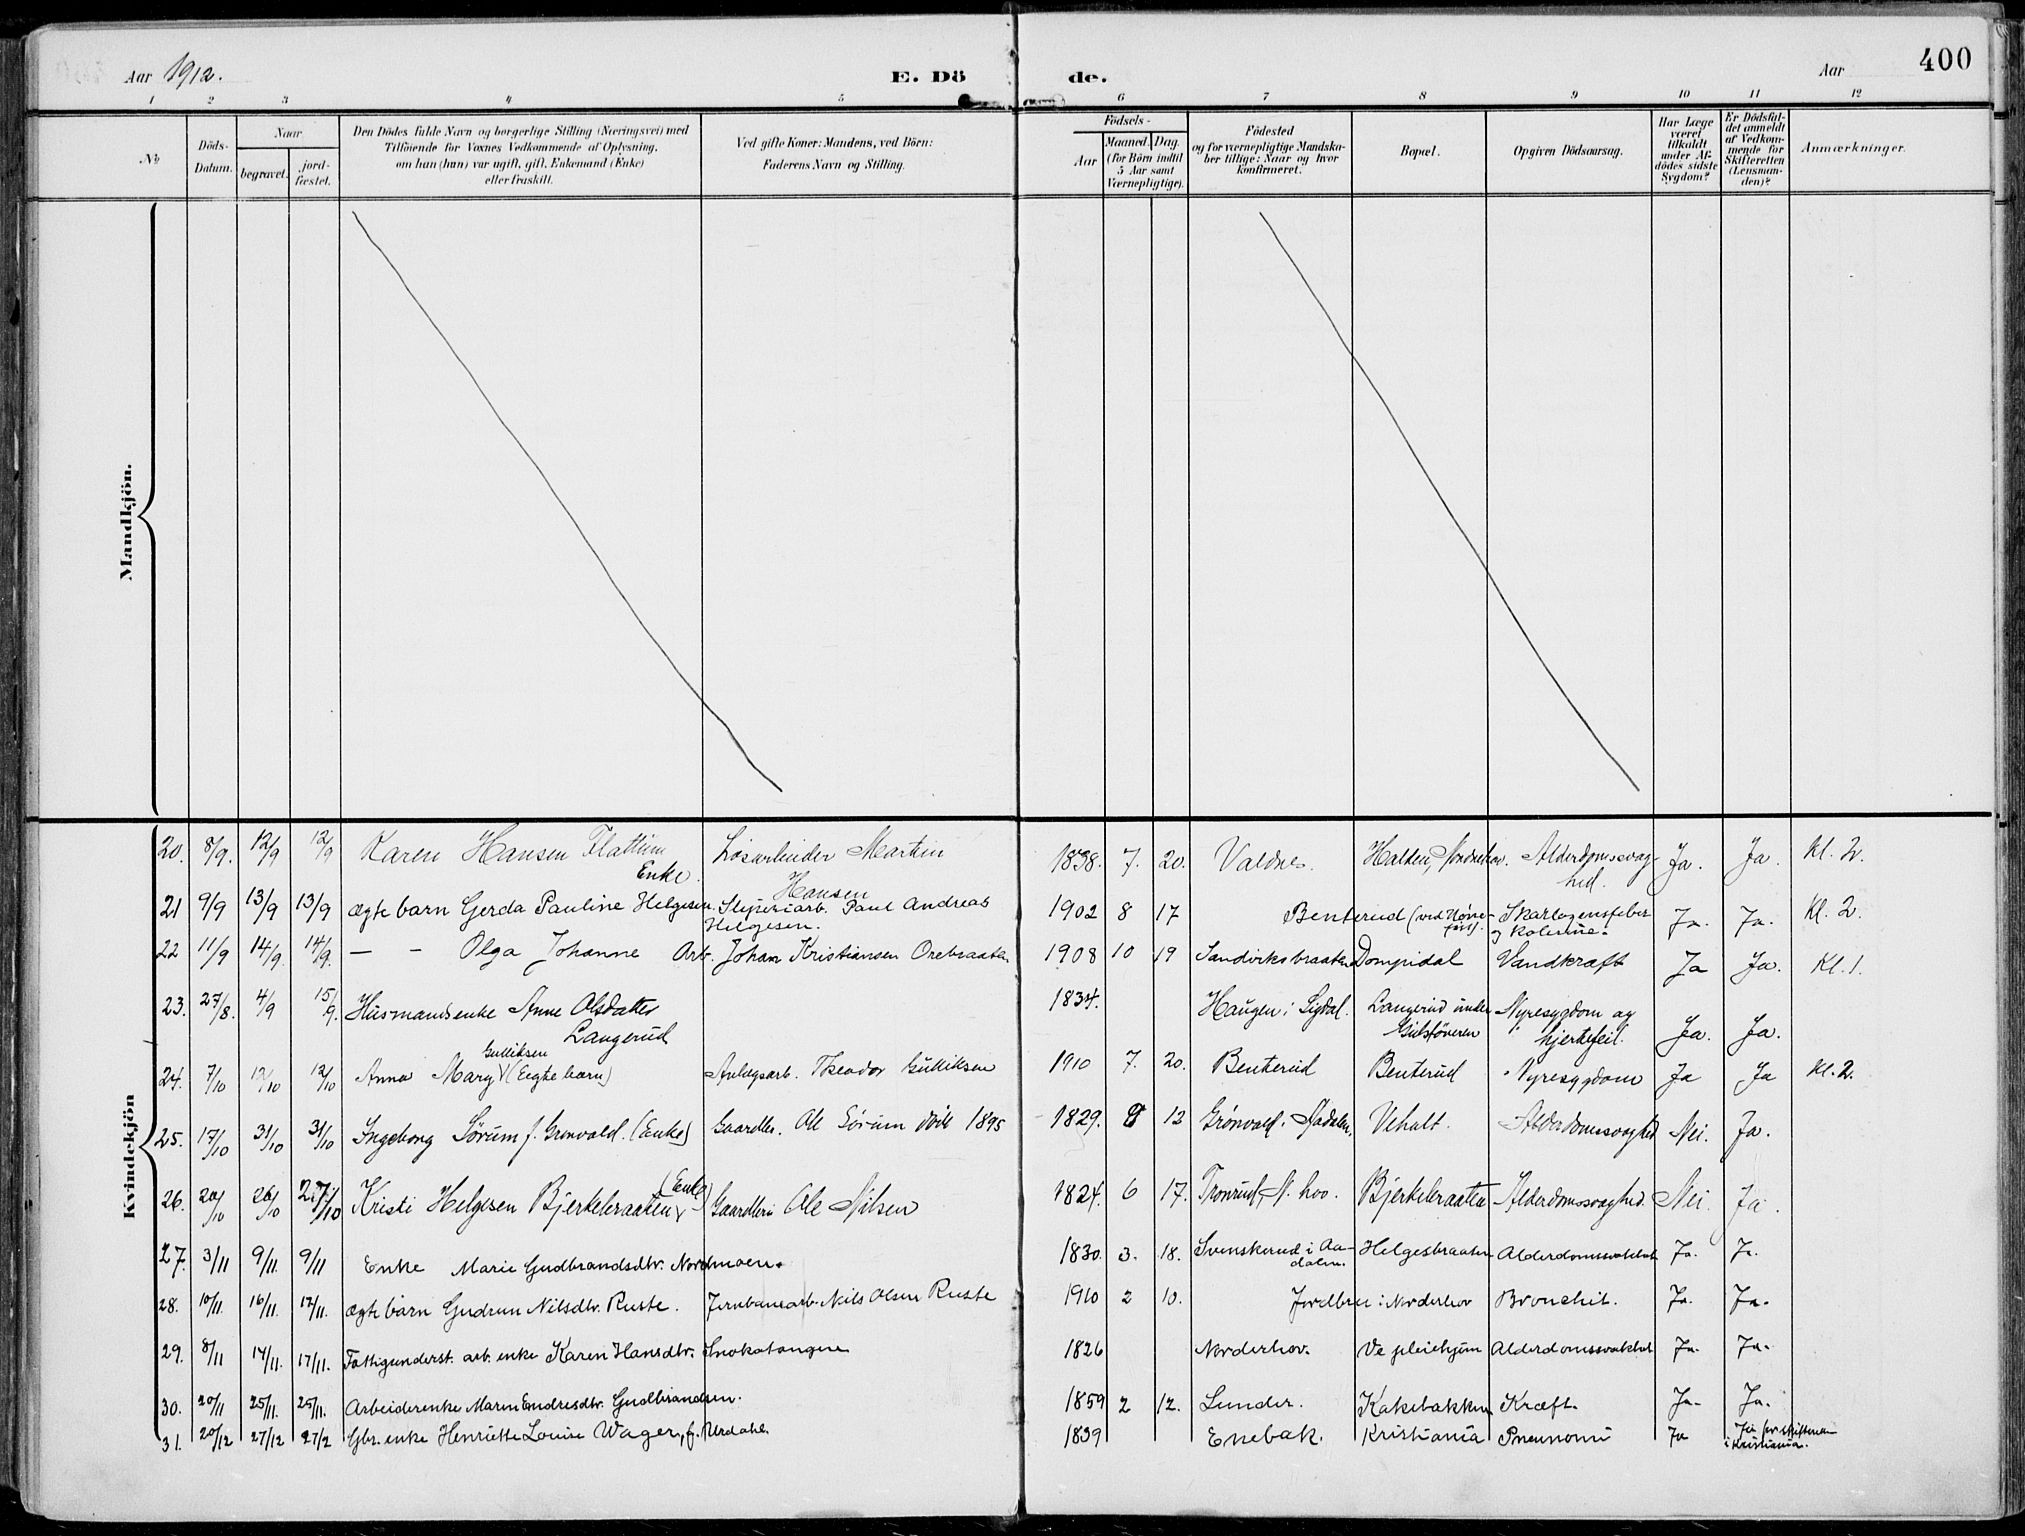 Aar 1912.
E. Dö
de.
Aar
400
1 2 3 4 5 6 7 8 9 10 11 12
No
Döds-
Datum.
Naar
begravet.
jord-
fæstet.
Den Dödes fulde Navn og borgerlige Stilling (Næringsvei) med
Tilföiende for Voxnes Vedkommende af Oplysning,
om han (hun) var ugift, gift, Enkemand (Enke)
eller fraskilt.
Ved gifte Koner: Mandens, ved Börn:
Faderens Navn og Stilling.
Födsels-
Aar
Maaned. Dag.
(for Börn indtil
5 Aar samt
Værnepligtige).
Födested
og for værnepligtige Mandska-
ber tillige: Naar og hvor
konfirmeret.
Bopæl.
Opgiven Dödsaarsag.
Har Læge
været
tilkaldt
under Af-
dödes sidste
Sygdom?
Er Dödsfal-
det anmeldt
af Vedkom-
mende for
Skifteretten
(Lensman-
den)?
Anmærkninger.
Mandkjön.
Kvindekjön
20. 8/9. 12/9 12/9 Karen Hansen Flattum Enke. Løsarbeider Martin Hansen 1838. 7. 20. Valdres. Halden, Alderdomssvaghed. Ja. Ja. Kl. 2.
21 9/9 13/9 13/9 ægte barn Gerda Pauline Helgesen. Sliperiarb. Paul Andreas Helgesen. 1902 8 17 Benterud (ved Hönefos). Skarlagensfeber og kolerine. Ja. Ja. Kl. 2.
22 11/9 14/9. 14/9. — - Olga Johanne Arb. Johan Kristiansen Orebraaten 1908 10 19 Sandviksbraaten Dompidal Vandkræft Ja Ja. Kl. 1.
23. 27/8. 4/9 15/9. Husmandsenke Anne Olsdatter Langerud 1834. Haugen i Sigdal. Langerud under Nyresygdom og hjertefeil. Ja. Ja.
24. 7/10 12/10 12/10 Anna Mary Gulliksen (Ægte barn) Anlægsarb. Theodor Gulliksen 1910 7. 20. Benterud Benterud Nyresygdom Ja Ja Kl. 2.
25. 17/10 31/10 31/10 Ingeborg Sørum f. Grønvold. (Enke) Gaardbr. Ole Sørum død 1895 1829. 8 12 Grønvold. Aadalen. Veholt. Alderdomssvaghed Nei. Ja.
26. 20/10 26/10 27/10 Kristi Helgesen Bjerkebraaten (Enke) Gaardbr. Ole Nilsen 1824. 6 17. Tronrud N. hov. Bjerkebraaten Alderdomssvaghed. Nei. Ja.
27. 3/11 9/11. 9/11 Enke Marie Gudbrandsdtr. Nordmoen. 1830. 3. 18. Svenskerud i Aadalen. Helgesbraaten Alderdomssvakhet Ja. Ja.
28. 10/11. 16/11. 17/11. ægte barn Gudrun Nilsdtr. Ruste. Jernbanearb. Nils Olsen Ruste 1910 2 10. Jordbru i Norderhov Bronchit. Ja. Ja.
29. 8/11 14/11. 17/11. Fattigunderst. arb. enke Karen Hansdtr. Snokatangen 1826 Norderhov. Ve pleiehjem Alderdomssvakhet Ja. Ja.
30. 20/11 25/11. 25/11. Arbeiderenke Maren Endresdtr. Gudbrandsen. 1859 2 12. Lunder. Kakebakken Kræft. Ja. Ja.
31. 20/12 27/12 27/2 Gbr. enke Henriette Louise Wager, f. Urdahl. 1839 Enebak. Kristiania Pneunomi Ja Ja for skifteren i Kristiania.